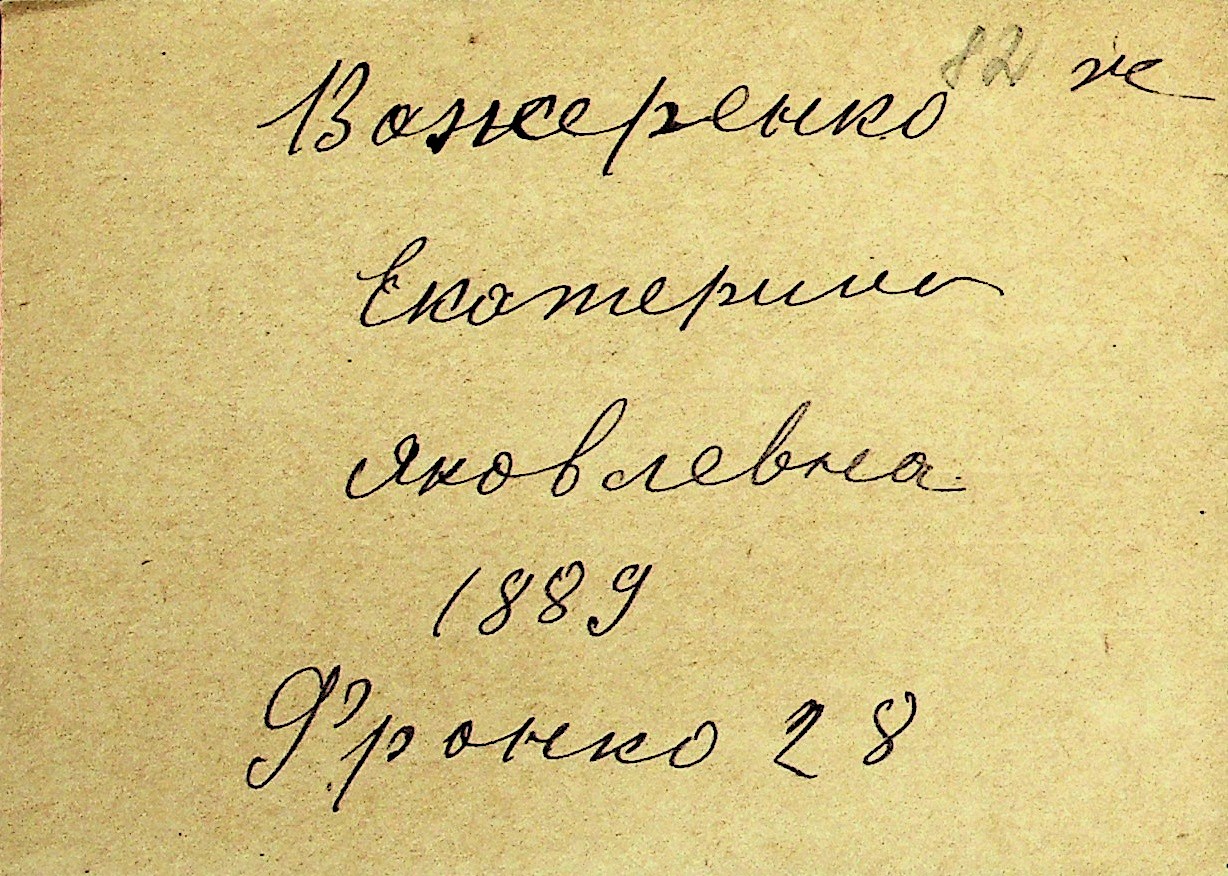 Важеренко 82 ж
Екатерина
Яковлевна
1889
Франко 28